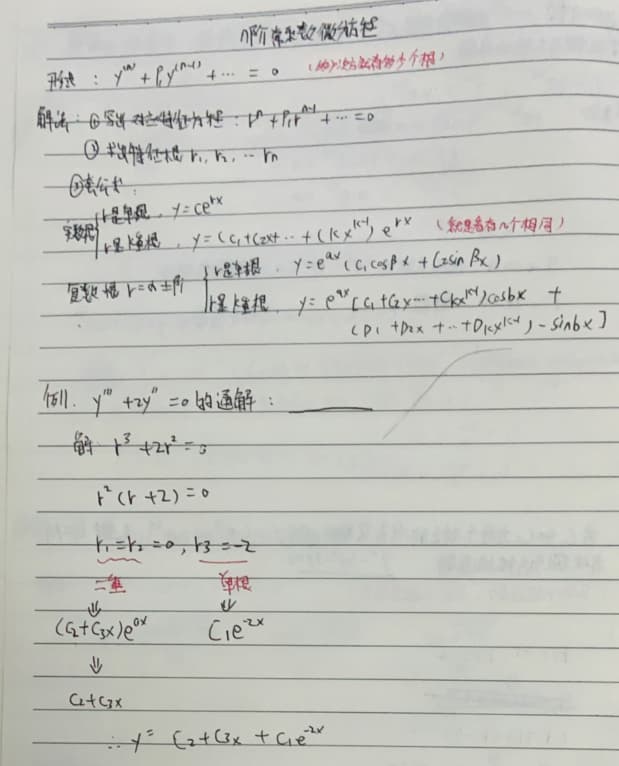 n阶常系数微分方程
形式: y⁽ⁿ⁾ + P₁y⁽ⁿ⁻¹⁾ + ⋯ = 0 (几次方就有几个根)
解法: ① 写出对应特征方程: rⁿ + P₁rⁿ⁻¹ + ⋯ = 0
② 求出特征根 r₁, r₂, ⋯ rₙ
③ 套公式:
实数根 r是单根, y = Ceʳˣ
r是k重根, y = (C₁+C₂x+⋯+(kxᵏ⁻¹) eʳˣ (就是看有几个相同)
复数根 r=α±βi r是单根. y=eᵅˣ(C₁cosβx + C₂sinβx)
r是k重根. y = eᵅˣ[C₁+C₂x⋯+Ckxᵏ⁻¹)cosbx +
(D₁+D₂x+⋯+Dkxᵏ⁻¹)-sinbx]
例1. y''' + 2y'' = 0 的通解:
解 r³ + 2r² = 0
r²(r+2) = 0
r₁=r₂=0, r₃=-2
二重 单根
⇓ ⇓
(C₂+C₃x)e⁰ˣ C₁e⁻²ˣ
⇓
C₂+C₃x
∴ y = C₂+C₃x + C₁e⁻²ˣ